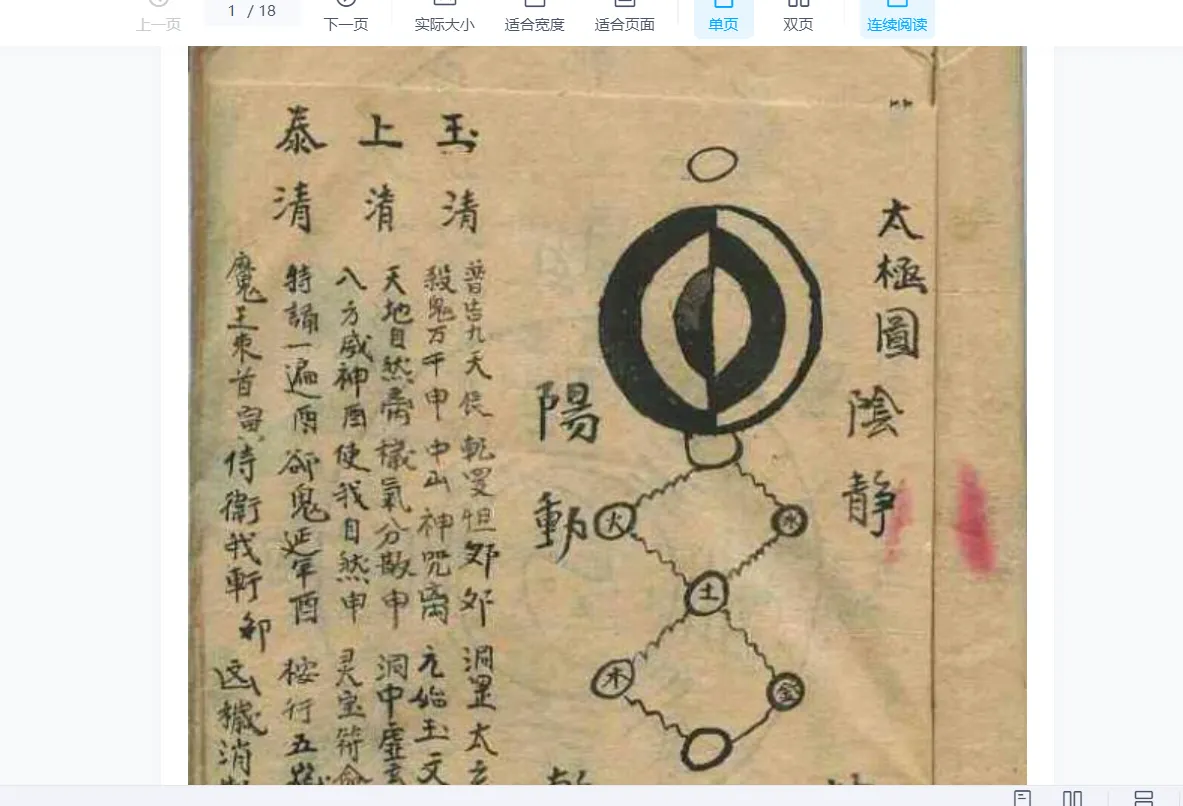 上一页
1 / 18
下一页
实际大小
适合宽度
适合页面
单页
双页
连续阅读
太極圖
陰靜
陽動
火
水
土
木
金
玉清
上清
泰清
普告九天 乾罗怛 洞罡太玄
殺鬼万千申中山神咒离元始玉文
天地自然离穢氣分散申洞中虚玄
八方威神酉使我自然申灵宝符命
特誦一遍酉郤鬼延年酉桉行五
魔王束首 侍衛我軒 凶穢消